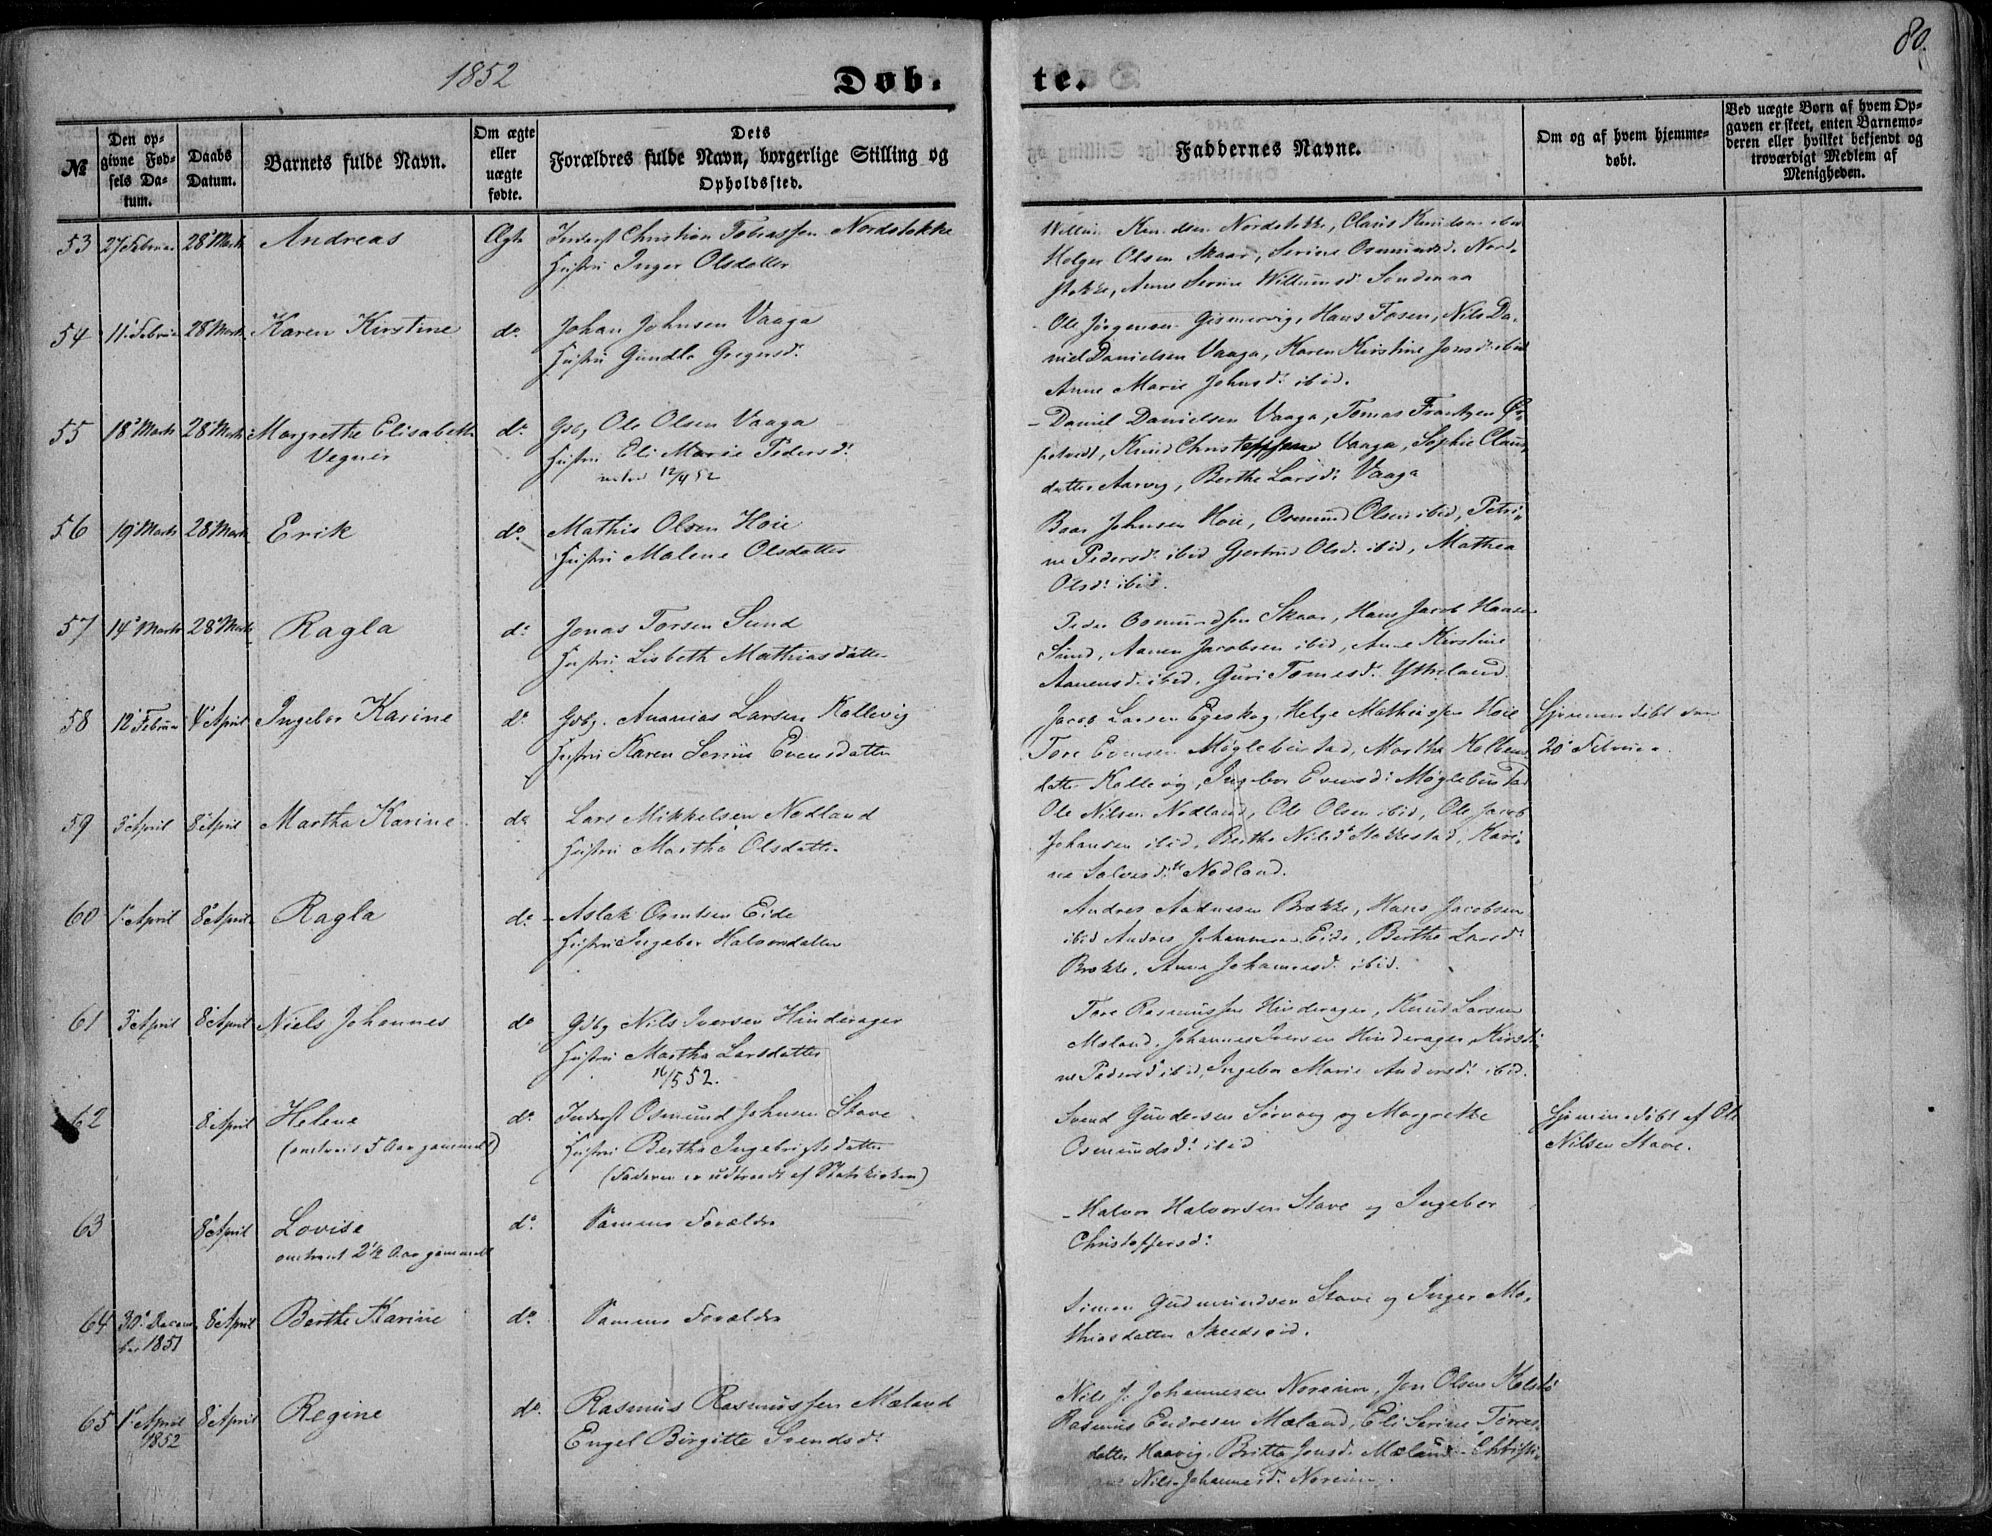 1852
Døb-
te.
80.
№
Den opgivne Fødsels Datum.
Daabs Datum.
Barnets fulde Navn.
Om ægte eller uægte fødte.
Dets Forældres fulde Navn, borgerlige Stilling og Opholdssted.
Faddernes Navne.
Om og af hvem hjemmedøbt.
Ved uægte Børn af hvem Opgaven er skeet, enten Barnemoderen eller hvilket bekjendt og troværdigt Medlem af Menigheden.
53 27 Februar 28 Marts Andreas Ægte Inderst Christian Tobiassen Nordstokke
Hustru Inger Olsdatter
Willum Knudsen Nordstokke, Claus Knudsen ibid
Holger Olsen Skaar, Serine Osmundsd. Nord-
stokke, Anne Serine Willumsd. Sandenaa
54 11 Februar 28 Marts Karen Kirstine do. Johan Johnsen Vaaga
Hustru Gundla Gregersd.
Ole Jørgensen Gismervig, Hans Fosen, Nils Da-
niel Danielsen Vaaga, Karen Kirstine Jonsd. ibid
Anne Marie Johnsd. ibid.
55 18 Marts 28 Marts Margrethe Elisabeth
Vegner
do. Gbg. Ole Olsen Vaaga
Hustru Eli Marie Pedersd.
12/9 52
Daniel Danielsen Vaaga, Tomas Frantzen
Knud Christoffersen Vaaga, Sophie Claus
datter Aarvig, Berthe Larsd. Vaaga
56 19 Marts 28 Marts Erik do. Mathis Olsen Hoie
Hustru Malene Olsdatter
Baar Johnsen Hoie, Osmund Olsen ibid, Petri-
ne Pedersd. ibid Gjertrud Olsd. ibid, Mathea
Olsd. ibid.
57 14 Marts 28 Marts Ragla do. Jonas Torsen Sund
Hustru Lisbeth Mathiasdatter
Peder Osmundsen Skaar, Hans Jacob Hansen
Sund, Aanen Jacobsen ibid, Anne Kirstine
Aanensd. ibid, Guri Tomesd. Ytreland
58 12 Februar 4 April Ingebor Karine do. Gbg. Ananias Larsen Kallevig
Hustru Karen Serine Evensdatter
Jacob Larsen Egeskog, Helge Mathiassen Hoie
Tore Evensen Møglebustad, Martha Kolbens
datter Kallevig, Ingebor Evensd. Møglebustad
Hjemmedøbt den
20 Februar.
59 3 April 8 April Martha Karine do. Lars Mikkelsen Nodland
Hustru Martha Olsdatter
Ole Nilsen Nodland, Ole Olsen ibid, Ole Jacob
Johansen ibid, Berthe Nilsd. Stokkestad, Kari-
ne Salvesd. Nodland.
60 1 April 8 April Ragla do. Aslak Osmtsen Eide
Hustru Ingebor Halvorsdatter
Andres Aadnesen Brokke, Hans Jacobsen
ibid Andres Johannesen Eide, Berthe Larsd.
Brokke, Anne Johannesd. ibid.
61 3 April 8 April Niels Johannes do. Gbg Nils Iversen Hinderager
Hustru Martha Larsdatter
16/5 52.
Tore Rasmussen Hinderager, Knud Larsen
Mæland, Johannes Iversen Hinderager, Kirsti-
ne Pedersd. ibid, Ingebor Marie Andersd. ibid.
62 8 April Helene
(omtrent 5 Aar gammelt)
do. Inderst Osmund Johnsen Stave
Hustru Bertha Ingebrigtsdatter
(Faderen er udtraadt af Statskirken)
Svend Gundersen Sørvaag og Margrethe
Osmundsd. ibid
Hjemmedøbt af Ole
Nilsen Stave.
63 8 April Lovise
omtrent 2½ Aar gammelt
do. Samme Forældre
Halvor Halvorsen Stave og Ingebor
Christoffersd.
64 30 Decem-
ber 1851
8 April Berthe Karine do. Samme Forældre
Simon Gudmundsen Stave og Inger Ma-
thiasdatter Skeidsvid.
65 1 April
1852
8 April Regine do. Rasmus Rasmussen Mæland
Engel Birgitte Svendsd.
Nils J. Johannesen Noreim, Jon Olsen Kolstø
Rasmus Endresen Mæland, Eli Serine Torres-
datter Haavig, Britta Jonsd. Mæland, Christi-
ane Nils-Johannesd. Noreim.